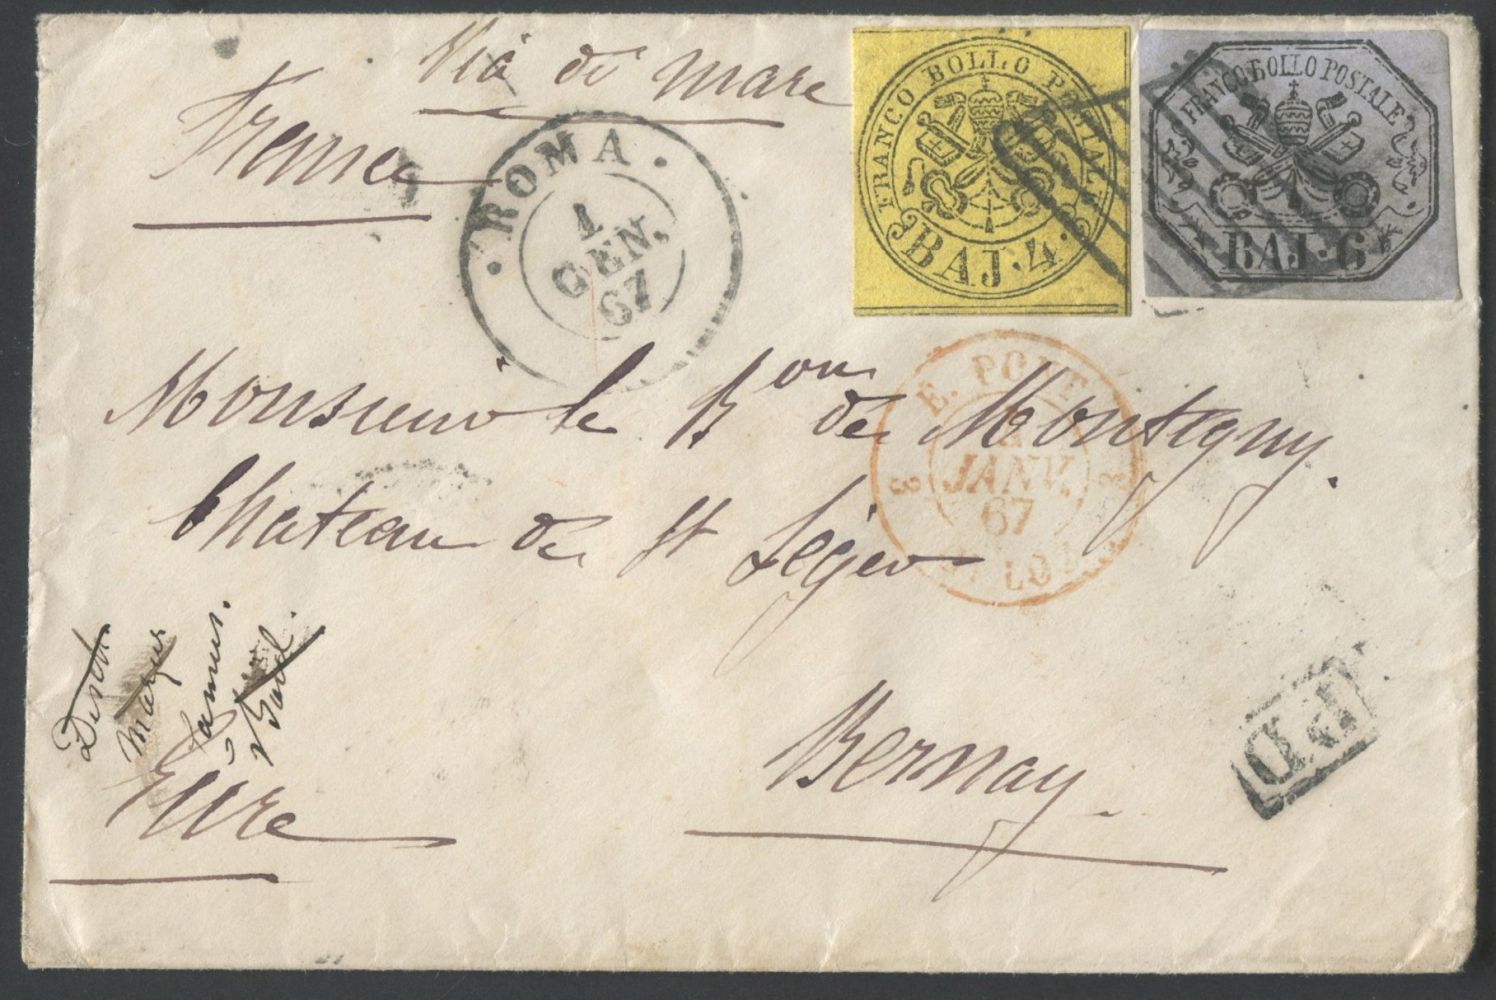 Via di mare
France
ROMA
1
GEN.
67
FRANCO BOLLO POSTALE
BAJ. 4.
FRANCO BOLLO POSTALE
BAJ. 6
E. PONT.
JANV.
67
3 3
Monsieur le Bon de Montigny.
Chateau de St Léger
Bernay
Eure
PD